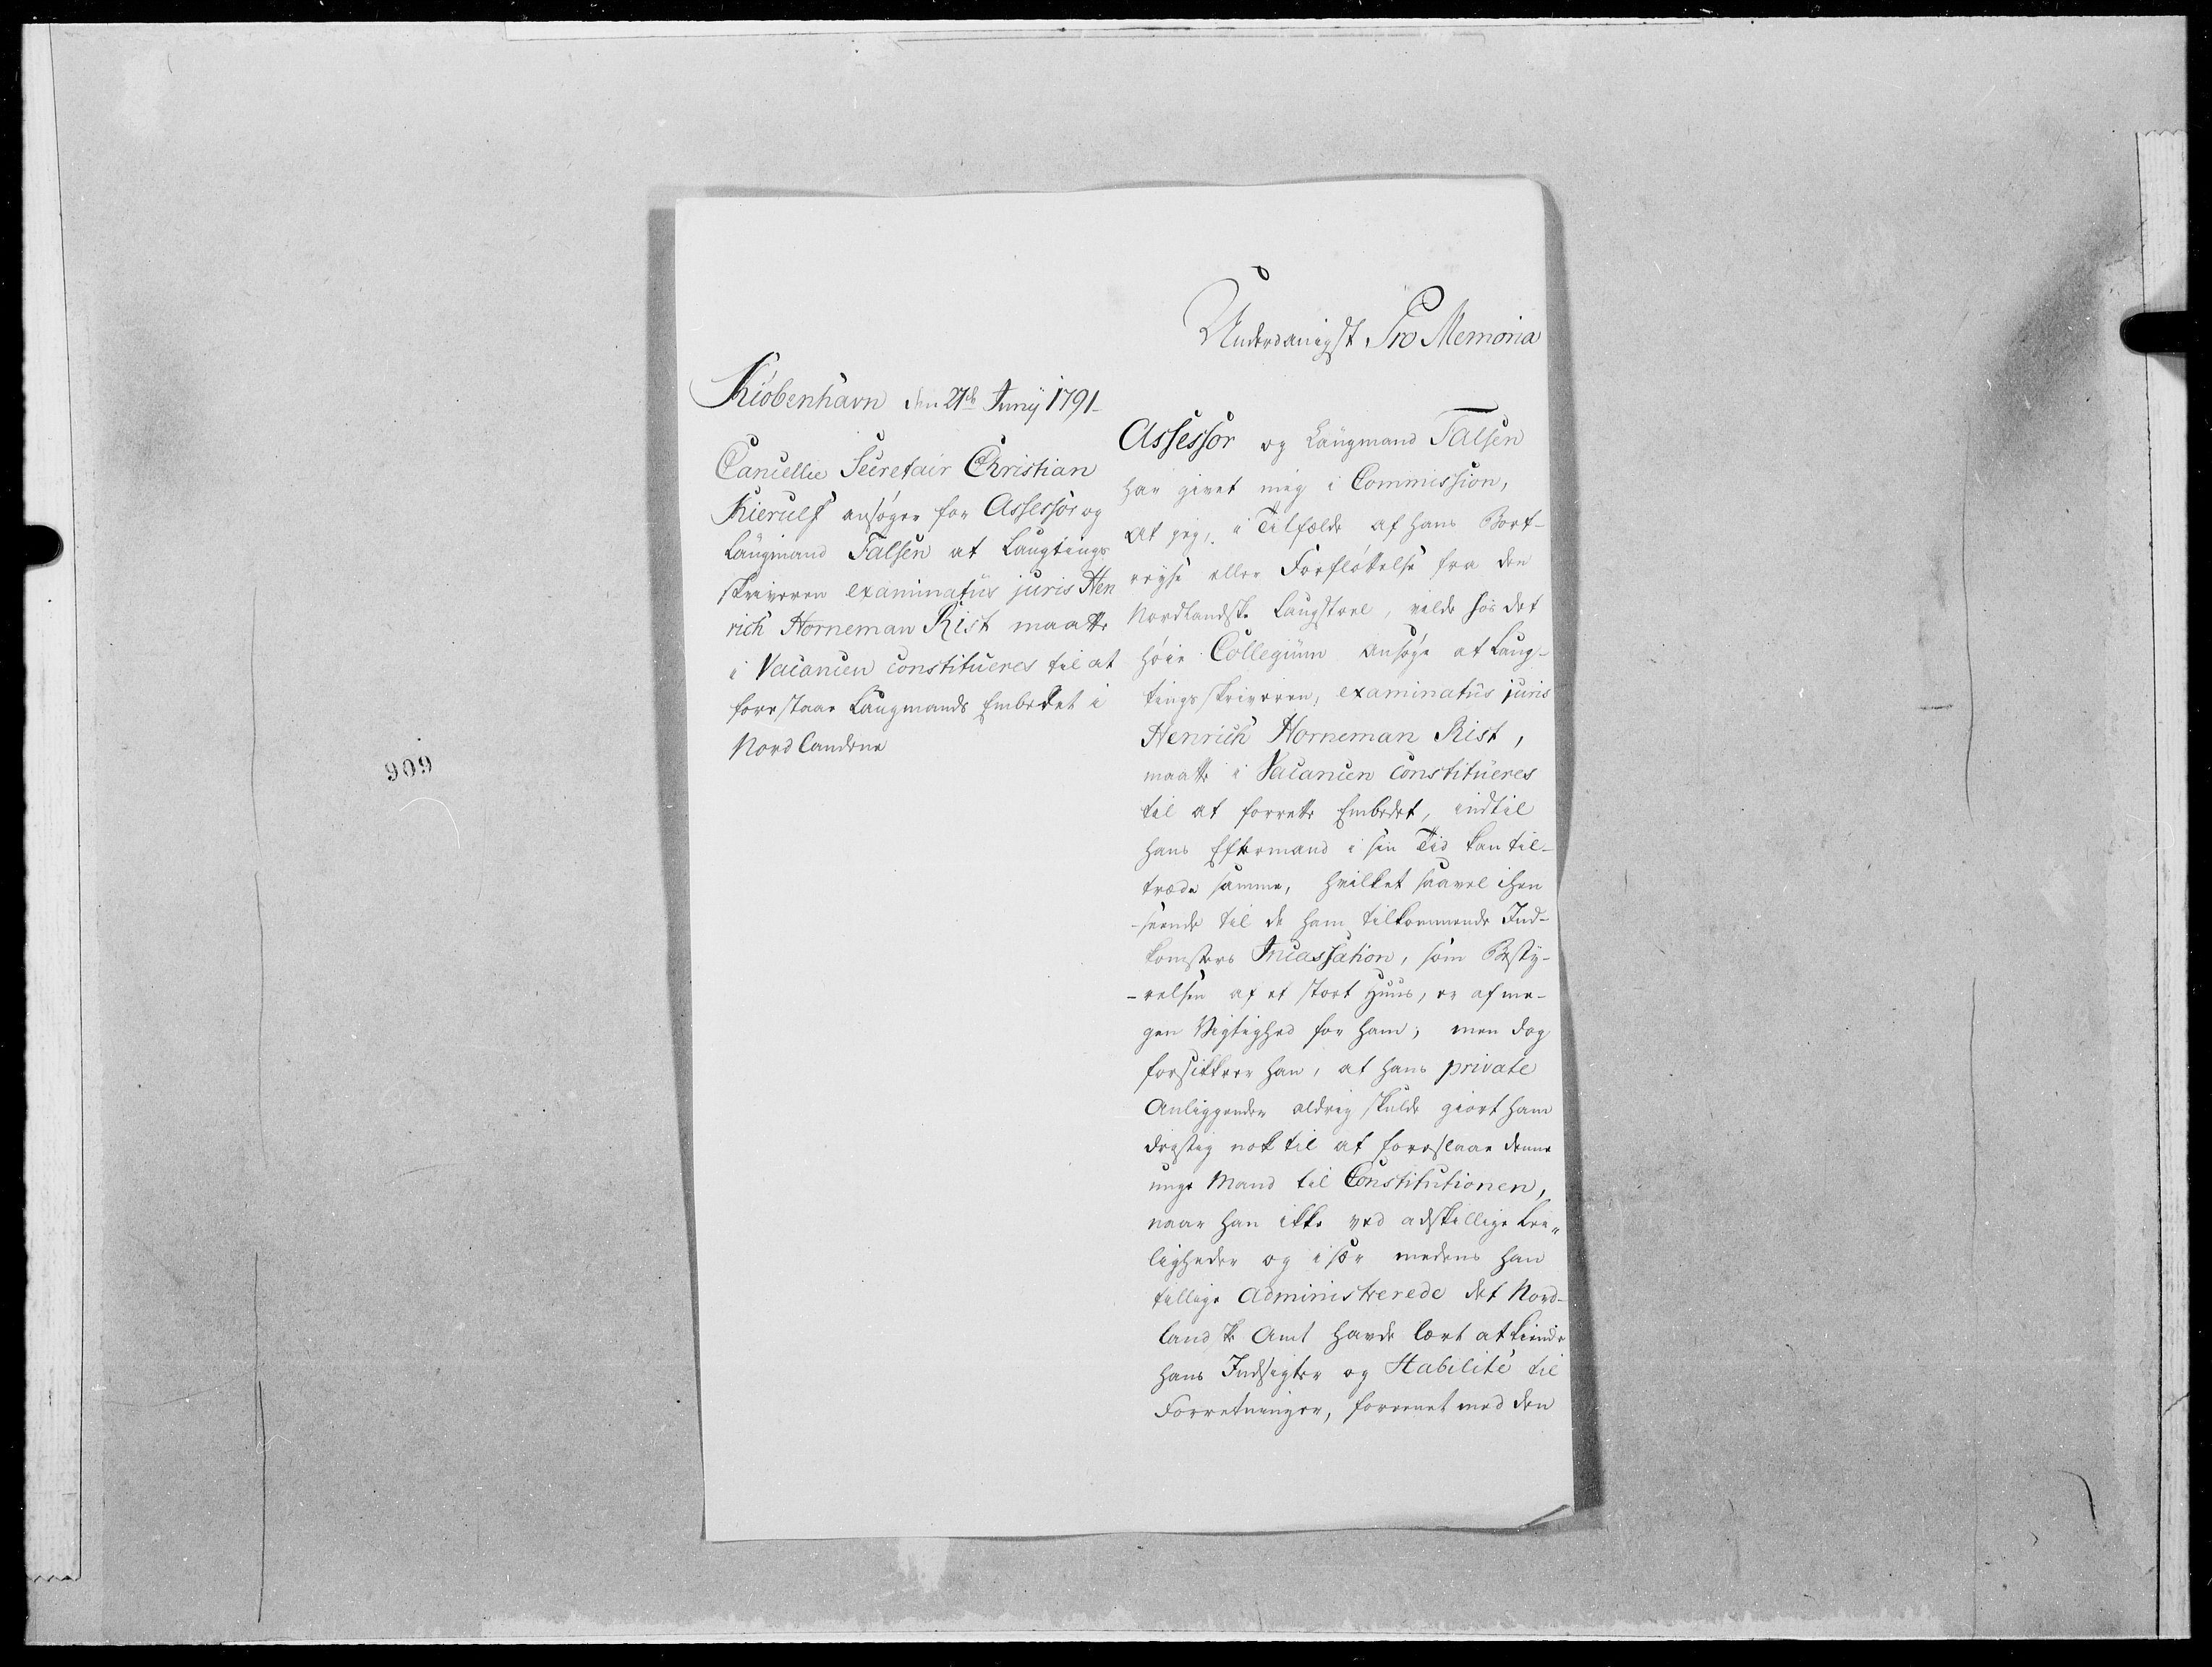 Underdanigst Pro Memoria
Kiøbenhavn den 27de Junÿ 1791-
Cancellie Secretair Christian
Kierulf ansøger for Assessor og
Laugmand Falsen at Laugtings
skriveren examinatus juris Hen
rich Horneman Rist maatte
i Vacancen constitueres til at
forestaae Laugmands Embedet i
Nordlandene
Assessor og Laugmand Falsen
har givet mig i Commission,
at jeg, i Tilfælde af hans Bort-
reyse eller Forfløttelse fra den
Nordlandske Laugstoel, vilde hos det
høie Collegium ansøge at Laug-
tingsskriveren, examinatus juris
Henrich Horneman Rist,
maatte i Vacancen constitueres
til at forrette Embedet, indtil
hans Eftermand i sin Tid kan til-
træde samme, hvilket saavel ihen
-seende til de ham tilkommende Ind-
komsters Incassation, som Besty-
-relsen af et stort Huus, er af me-
gen Vigtighed for ham; men dog
forsikkrer han, at hans private
Anliggender aldrig skulde giort ham
dristig nok til at foreslaae denne
unge Mand til Constitutionen,
naar han ikke ved adskillige Lee-
ligheder og især medens han
tillige administrerede det Nord-
landske Amt havde lært at kiende
hans Indsigter og Habilité til
Forretninger, foreenet med den
909